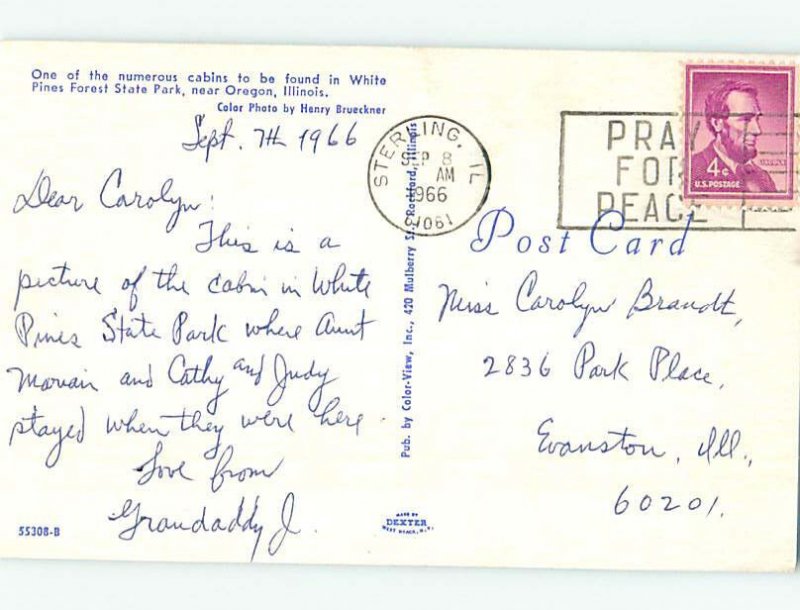 One of the numerous cabins to be found in White
Pines Forest State Park, near Oregon, Illinois.
Color Photo by Henry Brueckner
Sept. 7th 1966
Dear Carolyn:
This is a
picture of the cabin in White
Pines State Park where Aunt
Marian and Cathy and Judy
stayed when they were here.
Love from
Grandaddy J.
55308-B
Pub. by Color-View, Inc., 420 Mulberry St., Rockford, Illinois
MADE BY
DEXTER
WEST NYACK, N.Y.
STERLING, IL
SEP 8
AM
1966
61081
PRAY
FOR
PEACE
4¢
U.S. POSTAGE
Post Card
Miss Carolyn Brandt,
2836 Park Place,
Evanston, Ill.,
60201.